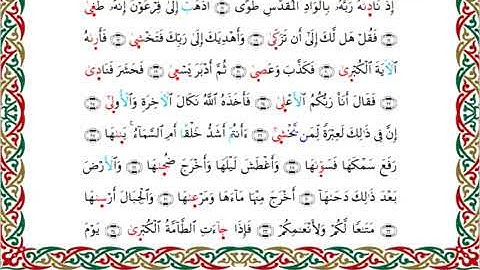 إِذۡ نَادَىٰهُ رَبُّهُۥ بِٱلۡوَادِ ٱلۡمُقَدَّسِ طُوًى ۝ ٱذۡهَبۡ إِلَىٰ فِرۡعَوۡنَ إِنَّهُۥ طَغَىٰ
۝ فَقُلۡ هَل لَّكَ إِلَىٰٓ أَن تَزَكَّىٰ ۝ وَأَهۡدِيَكَ إِلَىٰ رَبِّكَ فَتَخۡشَىٰ ۝ فَأَرَىٰهُ
ٱلۡأٓيَةَ ٱلۡكُبۡرَىٰ ۝ فَكَذَّبَ وَعَصَىٰ ۝ ثُمَّ أَدۡبَرَ يَسۡعَىٰ ۝ فَحَشَرَ فَنَادَىٰ
۝ فَقَالَ أَنَا۠ رَبُّكُمُ ٱلۡأَعۡلَىٰ ۝ فَأَخَذَهُ ٱللَّهُ نَكَالَ ٱلۡأٓخِرَةِ وَٱلۡأُولَىٰٓ ۝
إِنَّ فِي ذَٰلِكَ لَعِبۡرَةٗ لِّمَن يَخۡشَىٰٓ ۝ ءَأَنتُمۡ أَشَدُّ خَلۡقًا أَمِ ٱلسَّمَآءُۚ بَنَىٰهَا ۝
رَفَعَ سَمۡكَهَا فَسَوَّىٰهَا ۝ وَأَغۡطَشَ لَيۡلَهَا وَأَخۡرَجَ ضُحَىٰهَا ۝ وَٱلۡأَرۡضَ
بَعۡدَ ذَٰلِكَ دَحَىٰهَآ ۝ أَخۡرَجَ مِنۡهَا مَآءَهَا وَمَرۡعَىٰهَا ۝ وَٱلۡجِبَالَ أَرۡسَىٰهَا
۝ مَتَٰعٗا لَّكُمۡ وَلِأَنۡعَٰمِكُمۡ ۝ فَإِذَا جَآءَتِ ٱلطَّآمَّةُ ٱلۡكُبۡرَىٰ ۝ يَوۡمَ